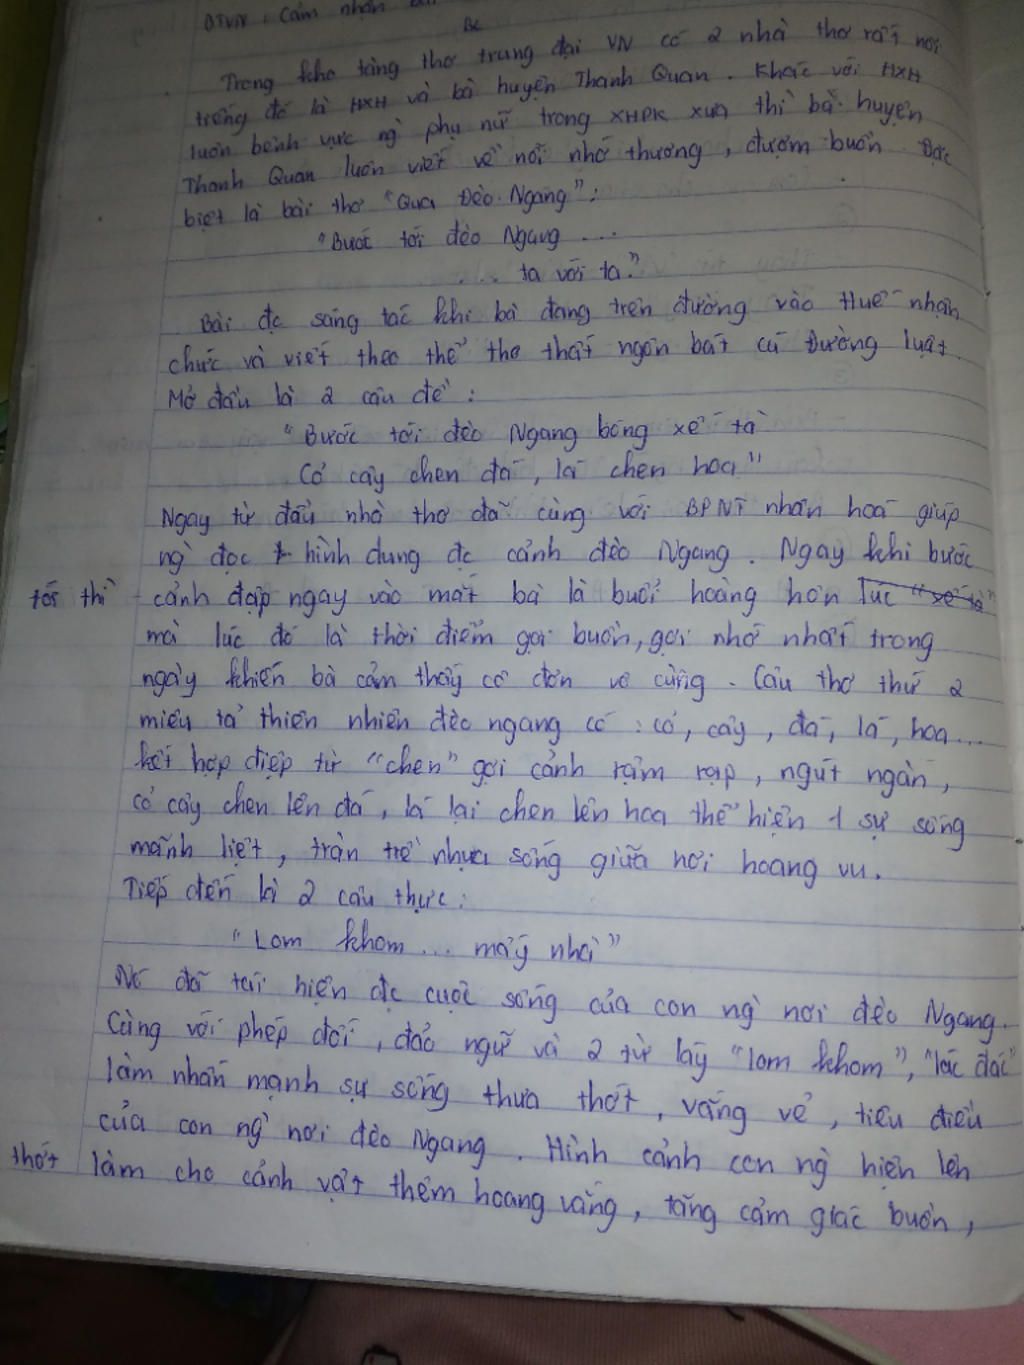 BTVN : Cảm nhận
Bc
Trong kho tàng thơ trung đại VN có 2 nhà thơ rất nổi
tiếng đó là HXH và bà huyện Thanh Quan. Khác với HXH
luôn bênh vực ng` phụ nữ trong XHPK xưa thì bà huyện
Thanh Quan luôn viết về nỗi nhớ thương, đượm buồn. Đặc
biệt là bài thơ "Qua Đèo Ngang":
"Bước tới đèo Ngang ...
... ta với ta."
Bài đc sáng tác khi bà đang trên đường vào Huế nhận
chức và viết theo thể thơ thất ngôn bát cú Đường luật.
Mở đầu là 2 câu đề :
"Bước tới đèo Ngang bóng xế tà
Cỏ cây chen đá, lá chen hoa"
Ngay từ đầu nhà thơ đã cùng với BPNT nhân hoá giúp
ng` đọc hình dung đc cảnh đèo Ngang. Ngay khi bước
tới thì cảnh đập ngay vào mắt bà là buổi hoàng hôn lúc "xế tà"
mà lúc đó là thời điểm gợi buồn, gợi nhớ nhất trong
ngày khiến bà cảm thấy cô đơn vô cùng. Câu thơ thứ 2
miêu tả thiên nhiên đèo ngang có : cỏ, cây, đá, lá, hoa...
kết hợp điệp từ "chen" gợi cảnh rậm rạp, ngút ngàn,
cỏ cây chen lên đá, lá lại chen lên hoa thể hiện 1 sự sống
mãnh liệt, tràn trề nhựa sống giữa nơi hoang vu.
Tiếp đến là 2 câu thực:
"Lom khom ... mấy nhà"
Nó đã tái hiện đc cuộc sống của con ng` nơi đèo Ngang.
Cùng với phép đối, đảo ngữ và 2 từ láy "lom khom", "lác đác"
làm nhấn mạnh sự sống thưa thớt, vắng vẻ, tiêu điều
của con ng` nơi đèo Ngang. Hình cảnh con ng` hiện lên
thớt làm cho cảnh vật thêm hoang vắng, tăng cảm giác buồn,